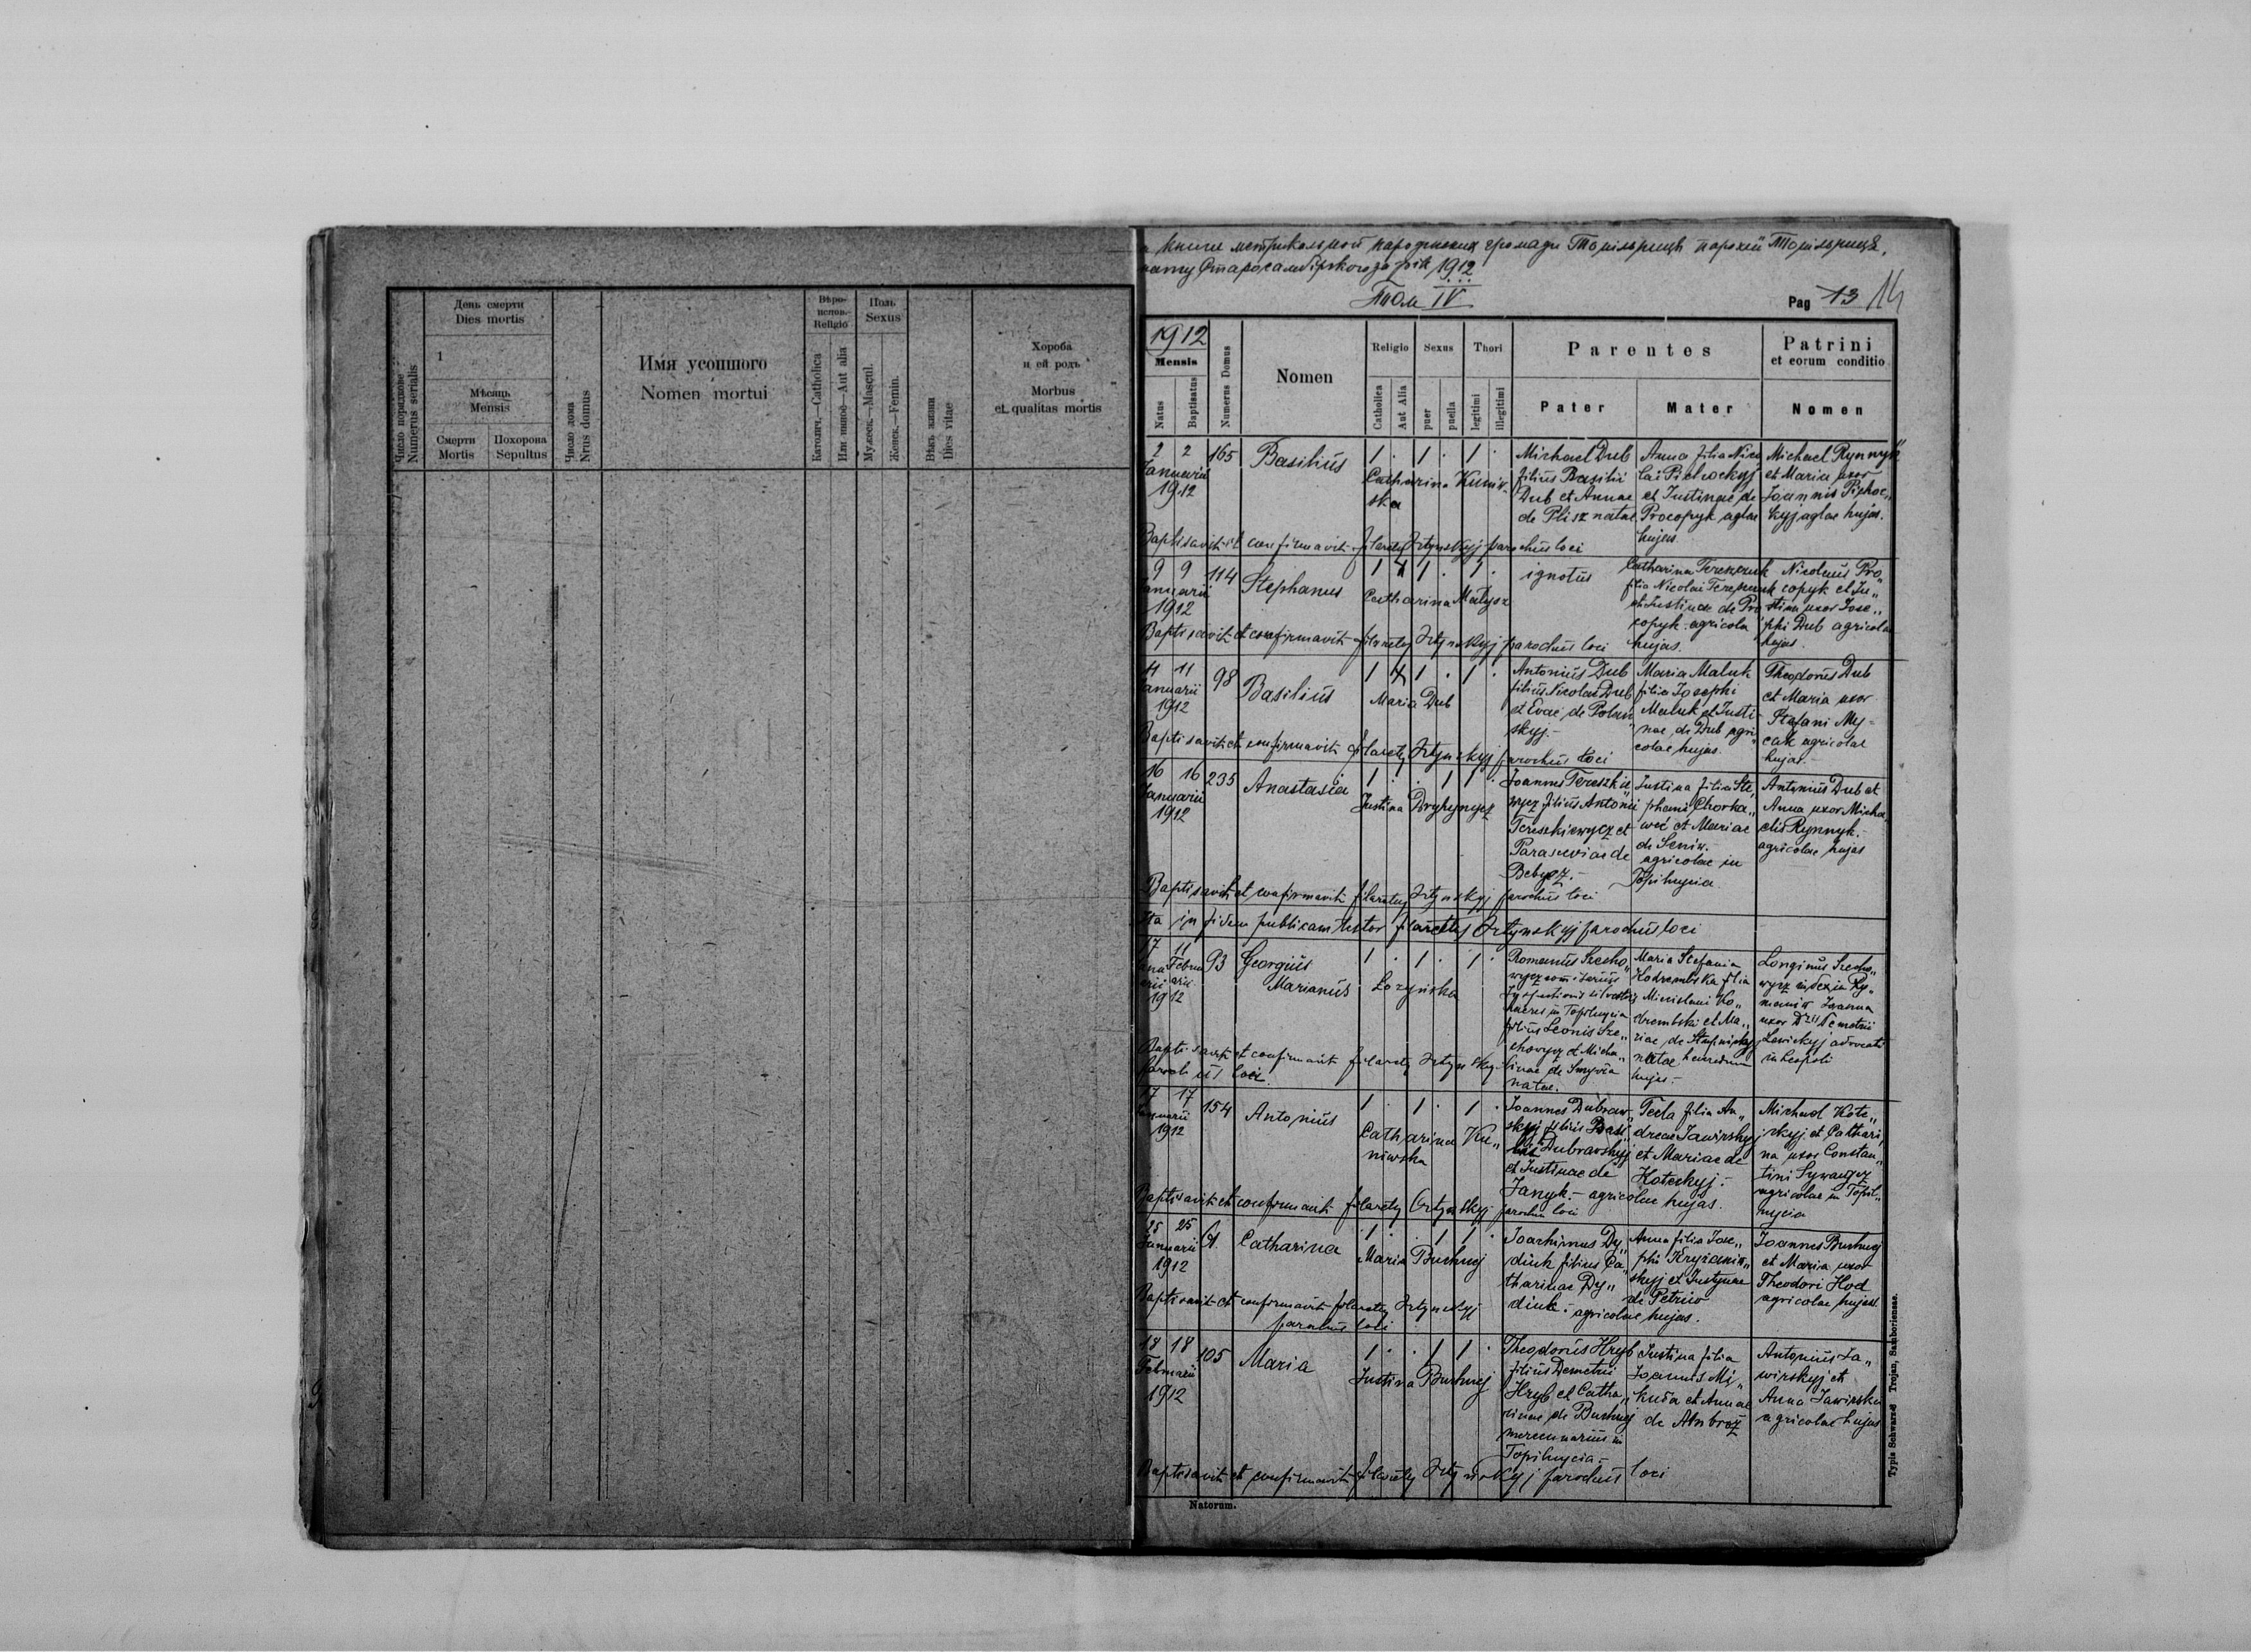 Число порядкове
Numerus serialis
День смерти
Dies mortis
1
Мѣсяць
Mensis
Смерти
Mortis
Похорона
Sepultus
Число дома
Nrus domus
Имя усопшого
Nomen mortui
Вѣро-
испов.
Religio
Католич.—Catholica
Или иное—Aut alia
Поль
Sexus
Мужеск.—Mascul.
Женск.—Femin.
Вѣкъ жизни
Dies vitae
Хороба
и ей родъ
Morbus
et qualitas mortis
книги метрикальной громади Топільниця парохії Топільниця,
Старосамбірского за рік 1912
Том IV
Pag 13 14
1912
Mensis
Natus
Baptisatus
Numerus Domus
Nomen
Religio
Catholica
Aut Alia
Sexus
puer
puella
Thori
legitimi
illegitimi
Parentes
Pater
Mater
Patrini
et eorum conditio
Nomen
2 2 165 Basilius 1 . 1 . 1 .
Januarii
1912
Catharina Kuniw-
ska
Michael Dub
filius Basilii
Dub et Annae
de Plisz natae
Anna filia Nico
lai Pichockyj
et Justinae de
Procopyk aglae
hujas.
Michael Rynnyk
et Maria uxor
Joannis Pichoc„
kyj aglae hujas.
Baptisavit et confirmavit Filarety Ortynskyj parochus loci
9 9 114 Stephanus 1 1 . 1 .
Januarii
1912
Catharina Matysz
ignotus
Catharina Tereszczuk
filia Nicolai Tereszczuk
et Justinae de Pro
copyk. agricola
hujas.
Nicolaus Pro„
copyk et Ju„
stina uxor Jose„
phi Dub agricolae
hujas.
Baptisavit et confirmavit Filarety Ortynskyj parochus loci
11 11 98 Basilius 1 1 . 1 .
Januarii
1912
Maria Dub
Antonius Dub
filius Nicolai Dub
et Evae de Polan
skyj.-
Maria Maluk
filia Josephi
Maluk et Justi-
nae de Dub agri„
colae hujas.
Theodorus Dub
et Maria uxor
Stefani My=
cak agricolae
hujas.-
Baptisavit et confirmavit Filarety Ortynskyj parochus loci
16 16 235 Anastasia 1 . . 1 1 .
Januarii
1912
Justina Dryhynycz
Joannes Tereszkie„
wycz filius Antonii
Tereszkiewycz et
Parasceviae de
Bebycz.-
Justina filia Ste„
phani Chorka„
weć et Mariae
de Seniw.
agricolae in
Topilnycia.
Antonius Dub et
Anna uxor Micha„
elis Rynnyk.-
agricolae hujas
Baptisavit et confirmavit Filarety Ortynskyj parochus loci
Ita in fidem publicam testor Filarety Ortynskyj parochus loci
17 11 93 Georgius 1 . 1 . 1 .
Febru
arii
1912
Marianus Lozynska
Romanus Szecho„
wycz
in Topilnycia
filius Leonis Sze„
chowycz et Micha„
linae de
natae.
Maria Stefania
Kodrembska filia
Miecislavi Ko„
drembski et Ma„
riae de
natae
hujas.-
Longinus Szecho„
wycz in Ry„
maniw Joanna
uxor Demetrii
Lewickyj advocati
in Leopoli
Baptisavit et confirmavit Filarety Ortynskyj
parochus loci
17 17 154 Antonius 1 . 1 . 1 .
Januarii
1912
Catharina Ku„
niwska
Joannes Dubraw„
skyj filius Basi„
lii Dubrawskyj
et Justinae de
Janyk.- agricolae hujas.
Tecla filia An„
dreae Jawirskyj
et Mariae de
Koteckyj.-
Michael Kote„
ckyj et Cathari„
na uxor Constan„
tini Sywanycz
agricolae in Topil„
nycia
Baptisavit et confirmavit Filarety Ortynskyj parochus loci
25 25 Catharina 1 . . 1 1 .
Januarii
1912
Maria Buchnyj
Joachimus Dy„
diuk filius Ca„
tharinae Dy„
diuk.- agricolae hujas.
Anna filia Jose„
phi Kryzaniw„
skyj et Justynae
de Petriw
Joannes Buchnyj
et Maria uxor
Theodori Hod
agricolae hujas.
Baptisavit et confirmavit Filarety Ortynskyj
parochus loci
18 18 105 Maria 1 . . 1 1 .
Februarii
1912
Justina Buchnyj
Theodorus Hryb
filius Demetrii
Hryb et Catha„
rinae de Buchnyj
mercenarius in
Topilnycia-
Justina filia
Joannis My„
kuła et Annae
de Ambroz
Antonius Ja„
wirskyj et
Anna Jawirska
agricolae hujas
Baptisavit et confirmavit Filarety Ortynskyj parochus loci
Natorum.
Typis Schwarz et Trojan, Samboriense.